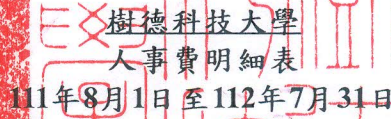 樹德科技大學
人事費明細表
111年8月1日至112年7月31日